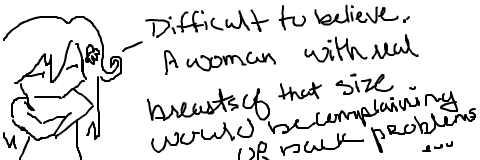 Difficult to believe.
A woman with real
breasts of that size
would be complaining
OR back problems
...